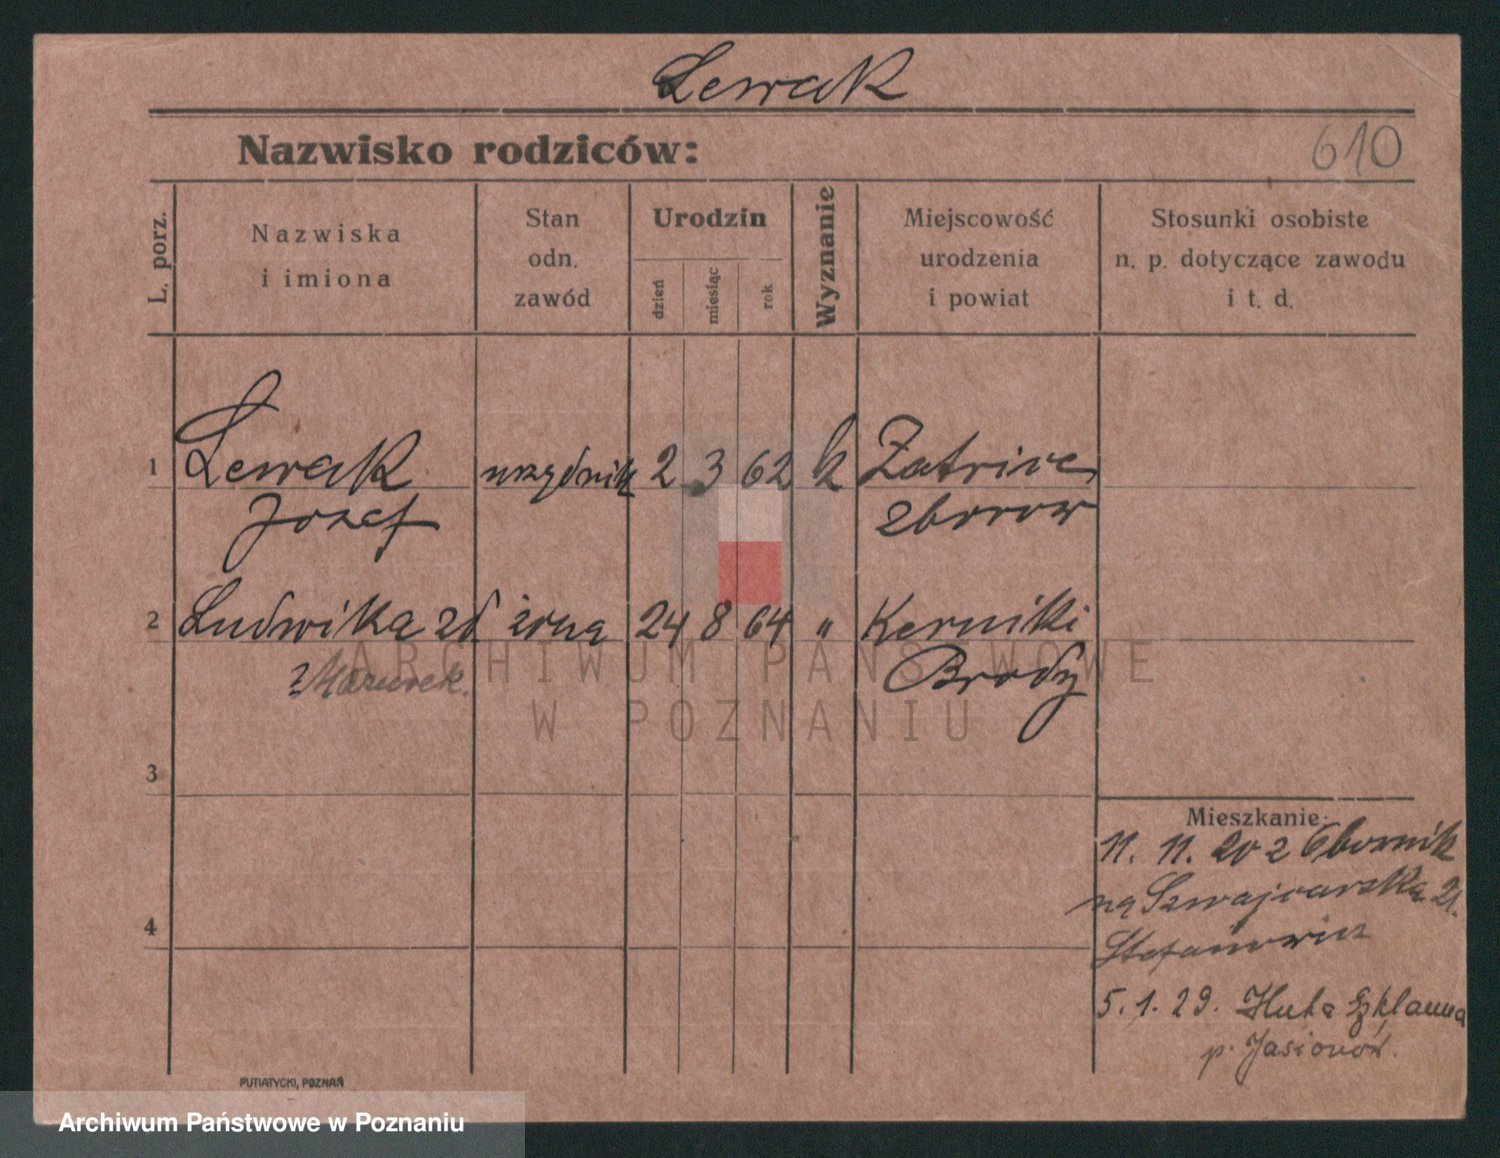 Lewak
Nazwisko rodziców:
610
L. porz.
Nazwiska
i imiona
Stan
odn.
zawód
Urodzin
dzień
miesiąc
rok
Wyznanie
Miejscowość
urodzenia
i powiat
Stosunki osobiste
n. p. dotyczące zawodu
i t. d.
1 Lewak urzędnik 2 3 62 k
Józef Zborow
2 Ludwika zd żona 24 8 64 " Kerniki
z Mazurek. Brody
ARCHIWUM PAŃSTWOWE
W POZNANIU
3
Mieszkanie:
11. 11. 20 z Obornik
na Szwajcarska 21.
Stefanowicz
4
5. 1. 29. Huta Szklanna
p. Jasionów.
PUTIATYCKI, POZNAŃ
Archiwum Państwowe w Poznaniu